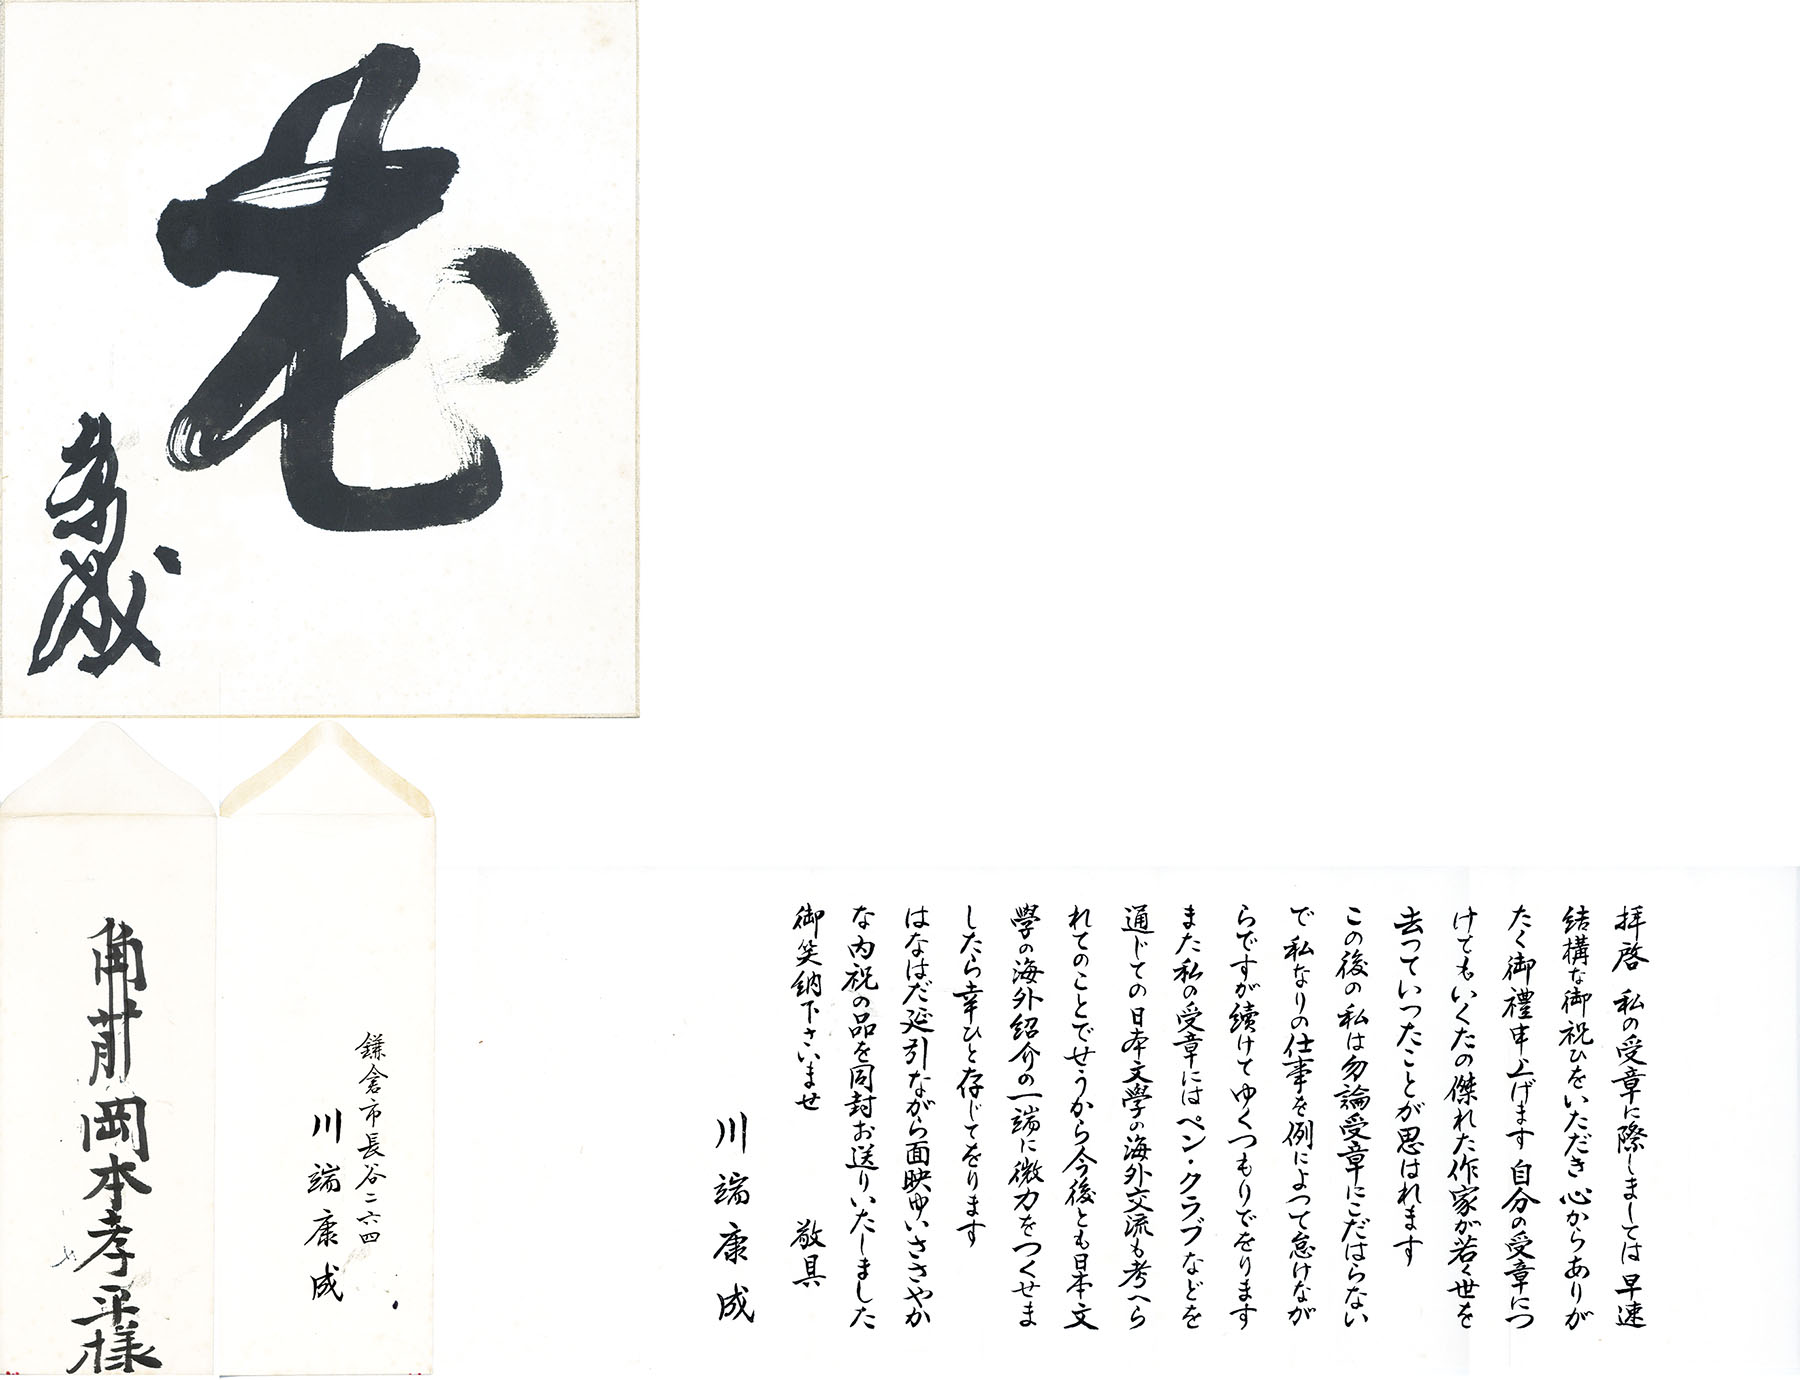 花
康成
角前岡本孝平様
鎌倉市長谷二六四
川端康成
拝啓 私の受章に際しましては早速
結構な御祝ひをいただき心からありが
たく御禮申上げます 自分の受章につ
けてもいくたの傑れた作家が若く世を
去つていつたことが思はれます
この後の私は勿論受章にこだはらない
で 私なりの仕事を例によつて怠けなが
らですが続けてゆくつもりでをります
また私の受章にはペン・クラブなどを
通じての日本文學の海外交流も考へら
れてのことでせうから今後とも日本文
學の海外紹介の一端に微力をつくせま
したら幸ひと存じてをります
はなはだ延引ながら面映ゆいささやか
な内祝の品を同封お送りいたしました
御笑納下さいませ 敬具
川端康成